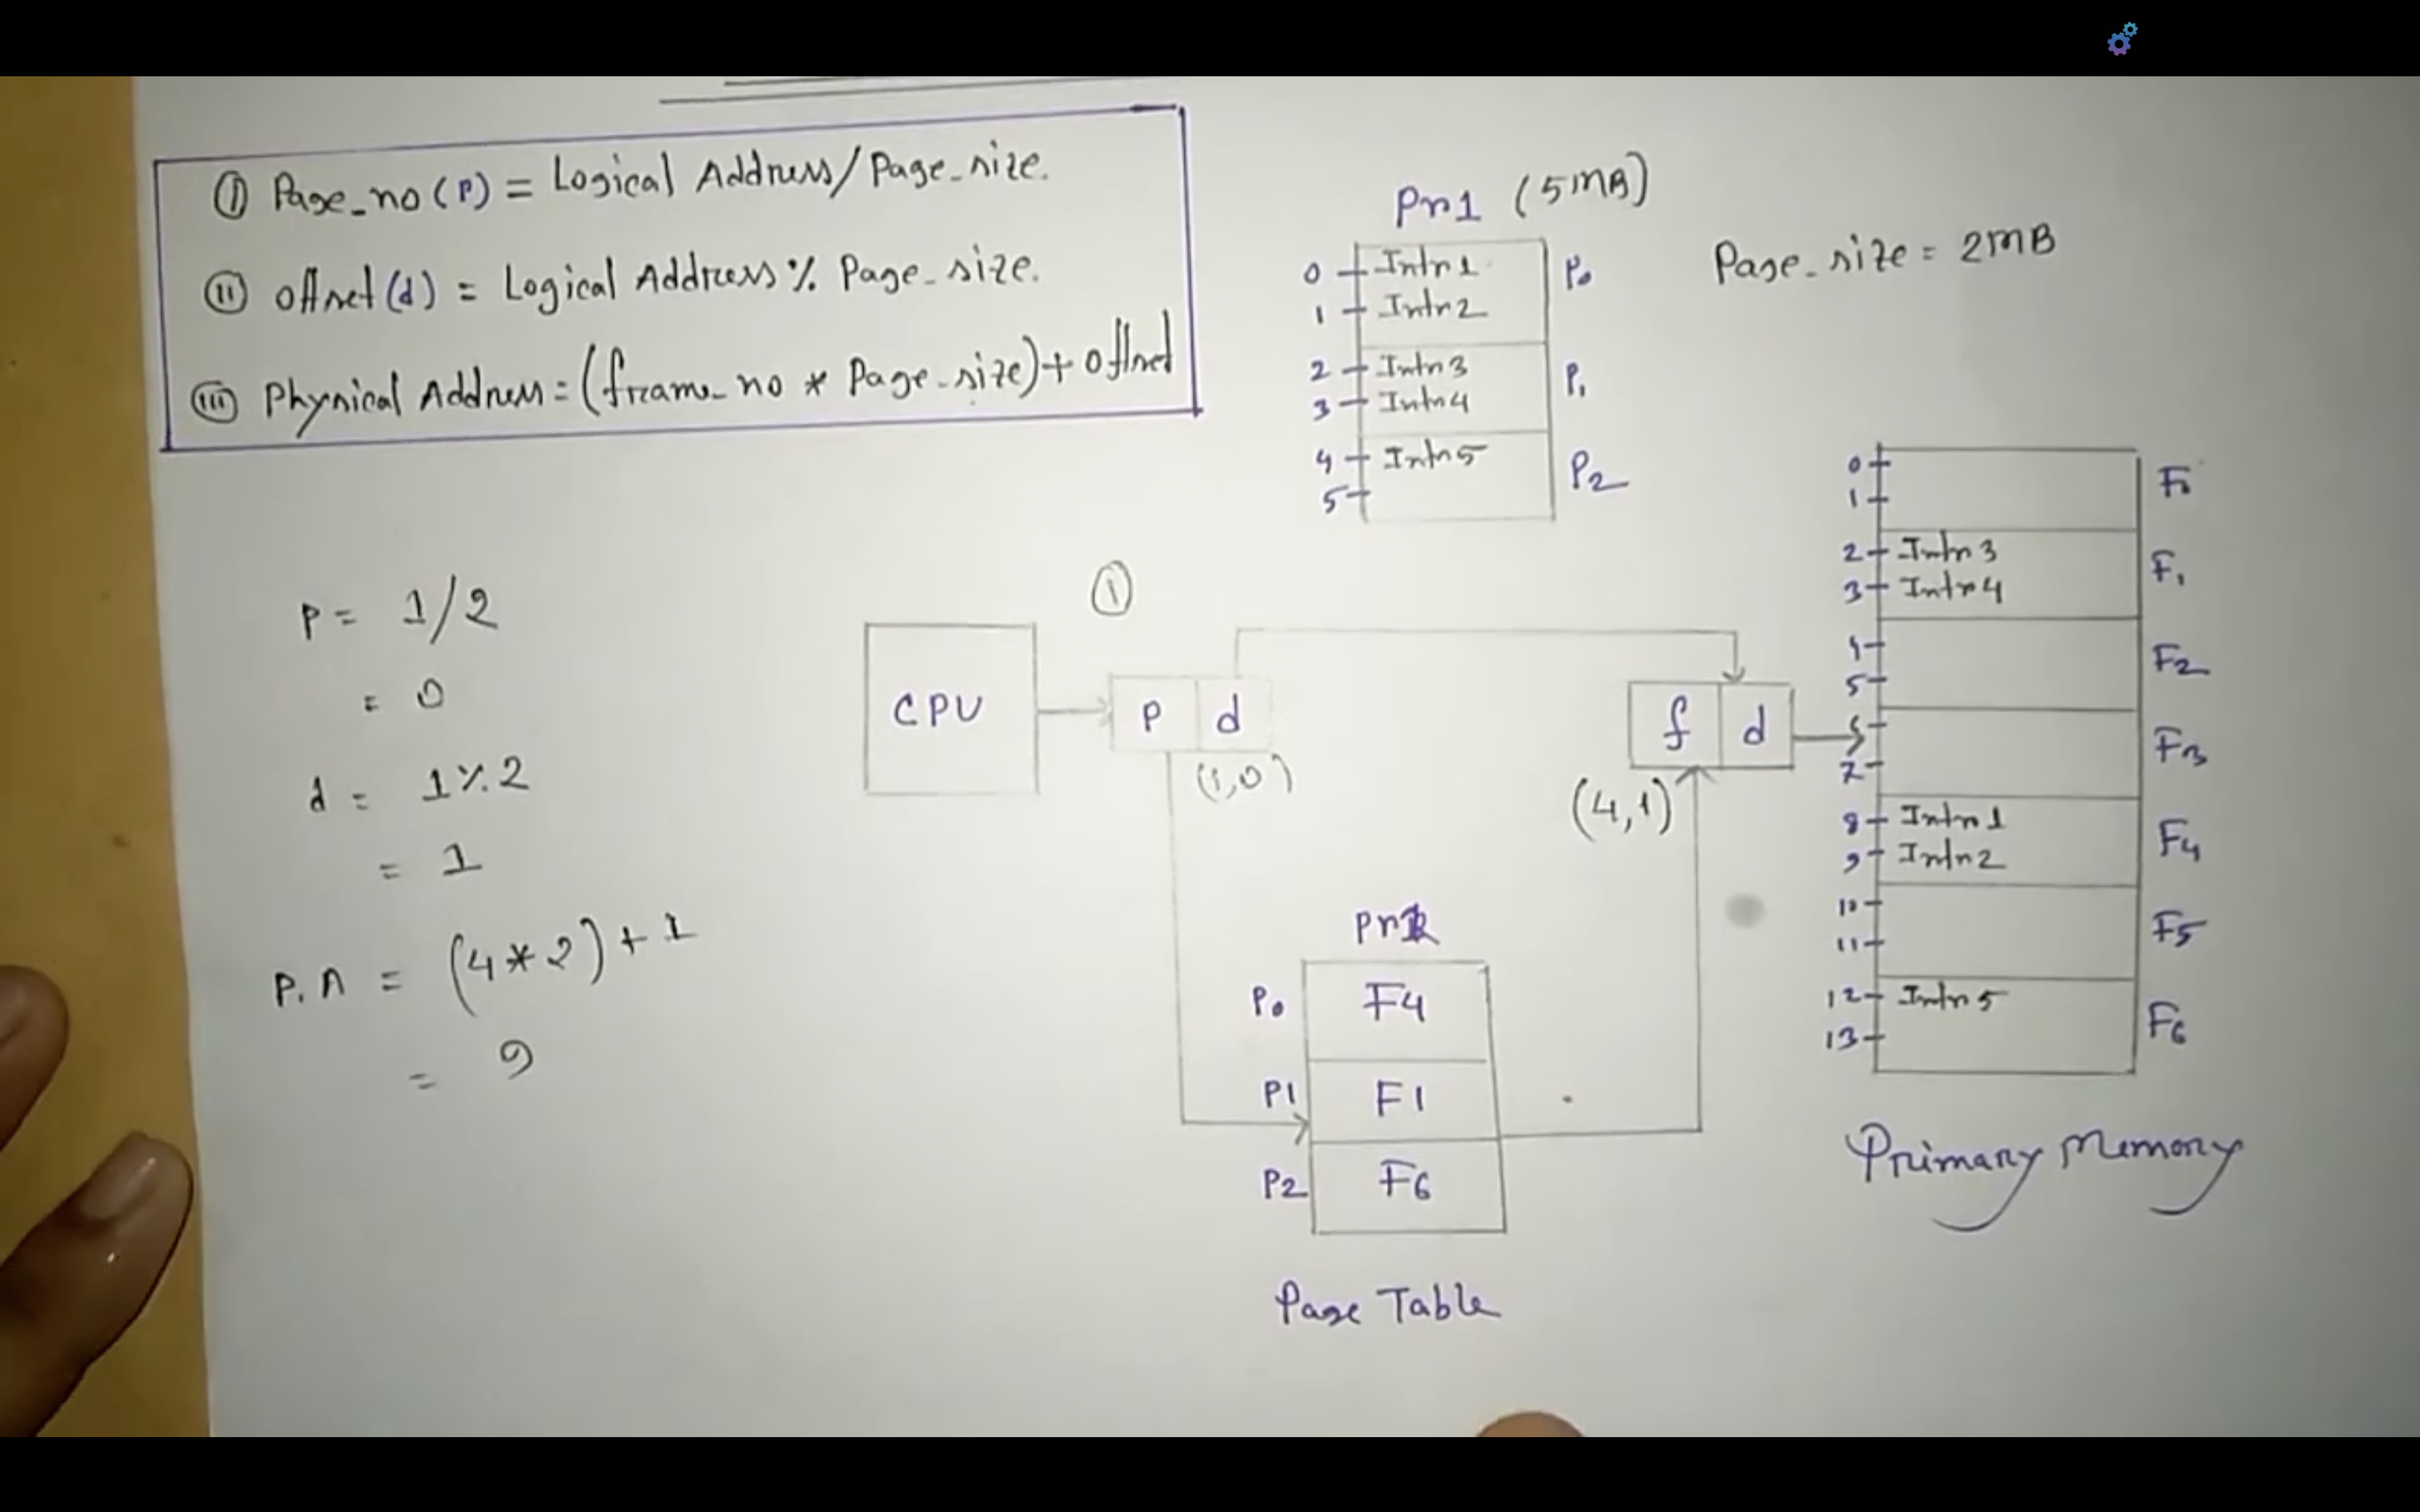 ① Page_no (P) = Logical Address/Page_size.
② offset (d) = Logical Address % Page_size.
③ Physical Address = (frame_no * Page_size) + offset
Pr1 (5MB)
Page_size = 2MB
0 Instr1 P0
1 Instr2
2 Instr3 P1
3 Instr4
4 Instr5 P2
5
P = 1/2
= 0
d = 1 % 2
= 1
P.A = (4*2) + 1
= 9
①
CPU
P d
(1,0)
f d
(4,1)
Pr1
P0 F4
P1 F1
P2 F6
Page Table
0 F0
1
2 Instr3 F1
3 Instr4
4 F2
5
6 F3
7
8 Instr1 F4
9 Instr2
10 F5
11
12 Instr5 F6
13
Primary Memory